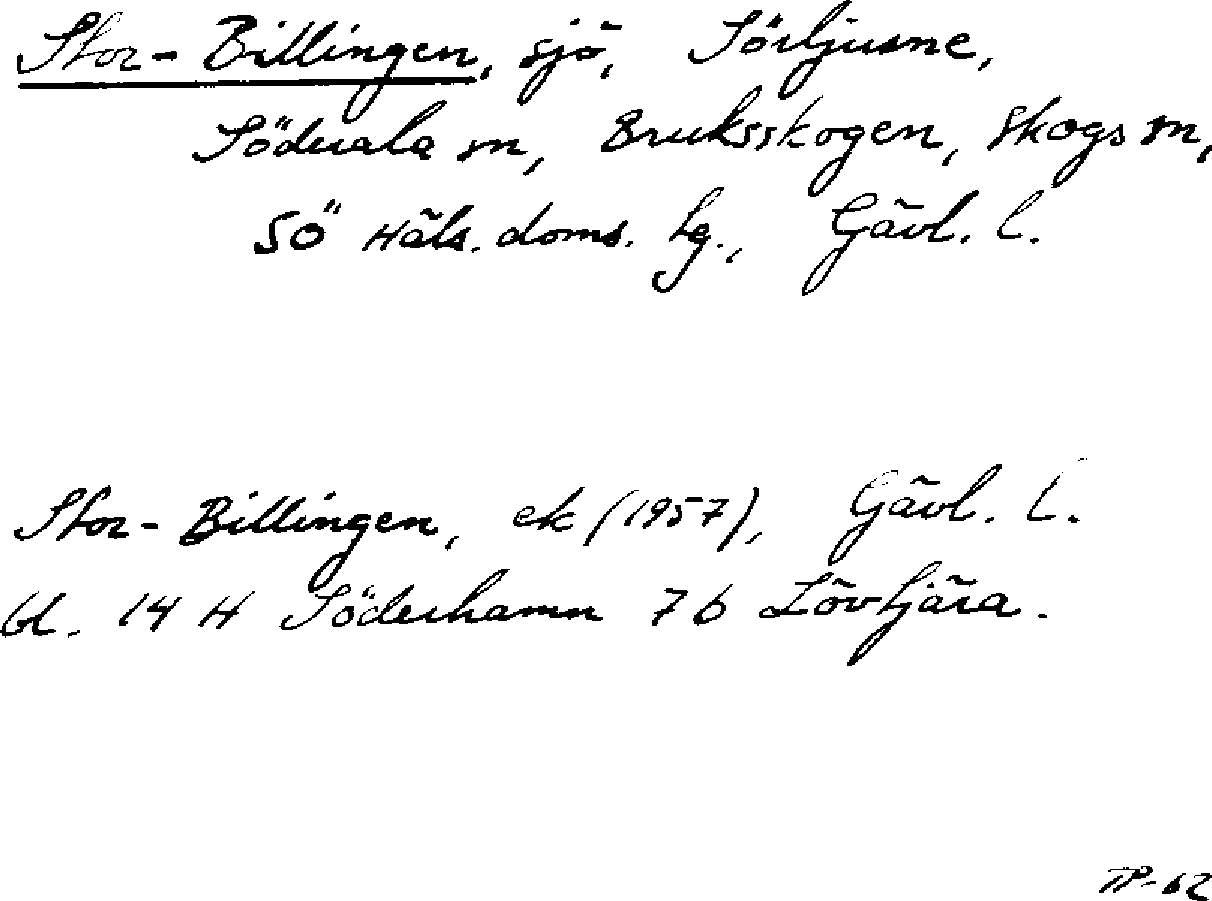 Stor-Billingen, sjö, Sörljusne,
Söderala sn, Bruksskogen, Skogs sn,
SÖ Häls. doms. hg., Gävl. l.
Stor-Billingen, ek (1957), Gävl. l.
bl. 14 H Söderhamn 7b Lövtjära.
TP-62